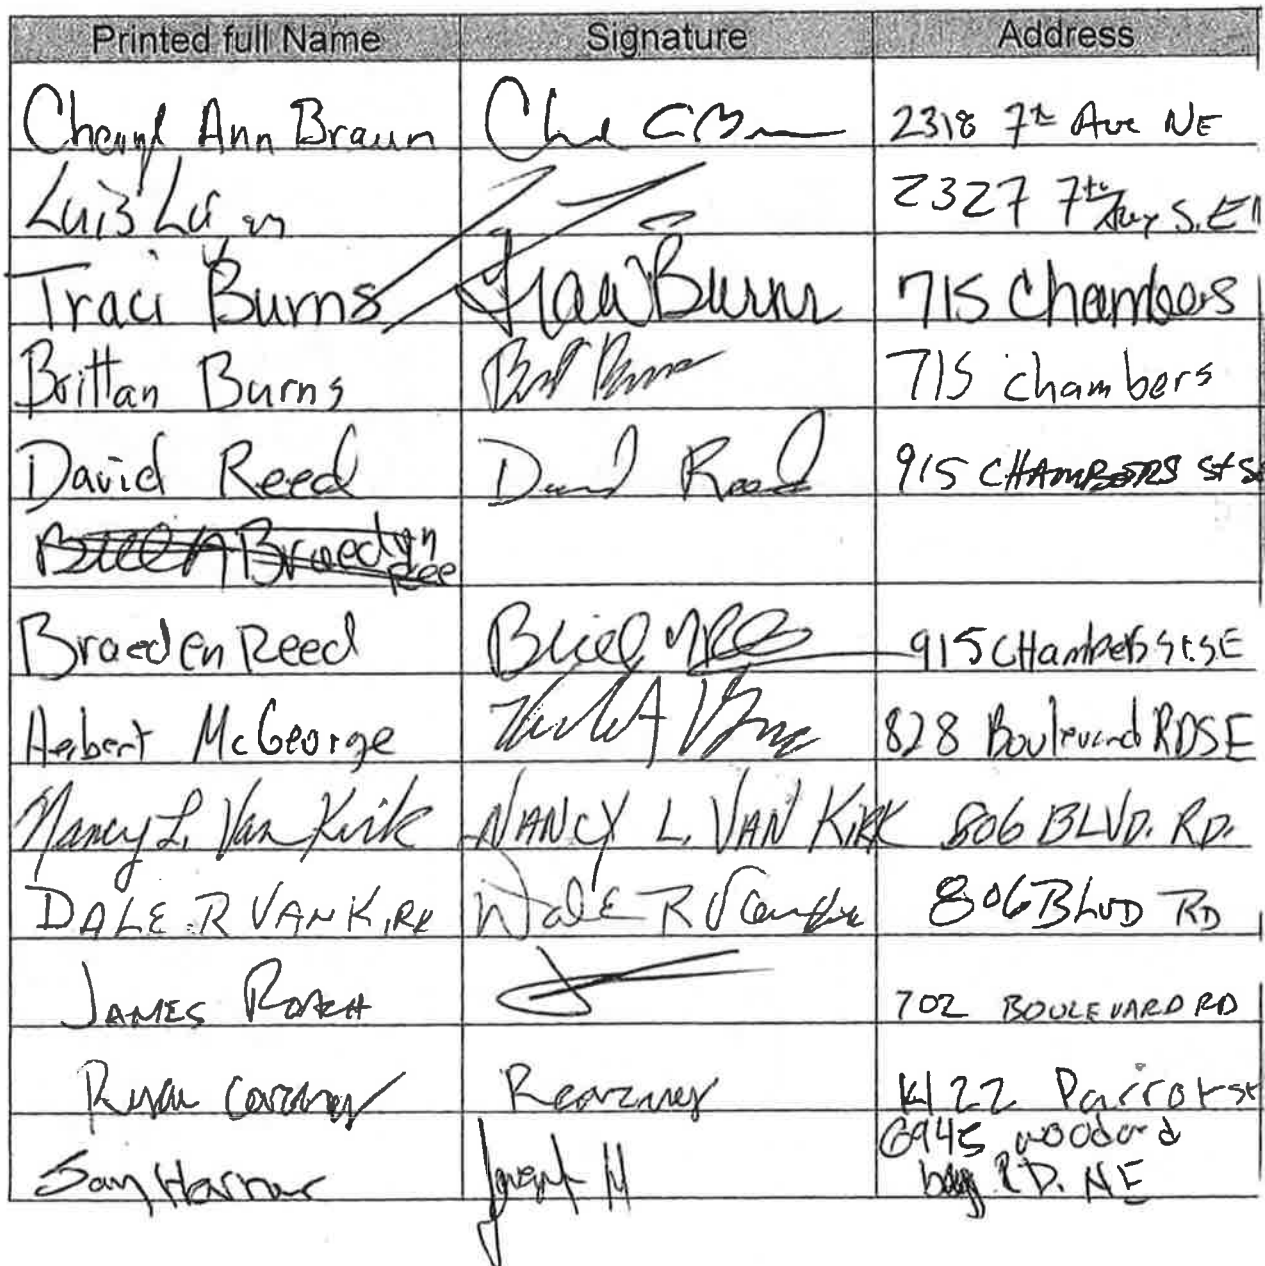 Printed full Name Signature Address
Cheryl Ann Braun 2318 7th Ave NE
Luis 2327 7th S.E
Traci Burns Traci Burns 715 Chambers
Brittan Burns 715 chambers
David Reed David Reed 915 CHAMBERS St SE
Braedyn Ree
Braeden Reed 915 CHambers St. SE
Herbert McGeorge 828 Boulevard RD SE
Nancy L. Van Kirk NANCY L. VAN KIRK 806 BLVD. RD.
DALE R VAN KIRK Dale R Van Kirk 806 BLVD RD
JAMES ROACH 702 BOULEVARD RD
Ryan 22 Parrot st
6945 woodard
bay RD. NE